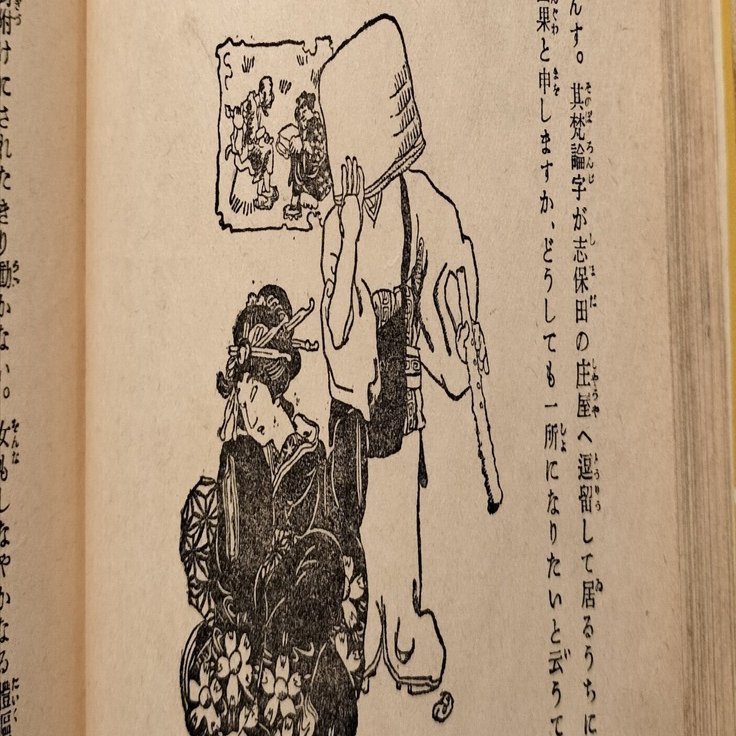 んす。其梵論字が志保田の庄屋へ逗留して居るうちに
果と申しますか、どうしても一所になりたいと云うて
附けにされたきり動かない。女もしなやかなる體軀